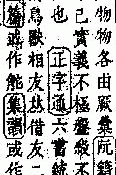 物物各由厥彙阮籍
己實義不極盤殺不
也正字通六書統
鳥獸相友𠀤借友二
或作能集韻或作